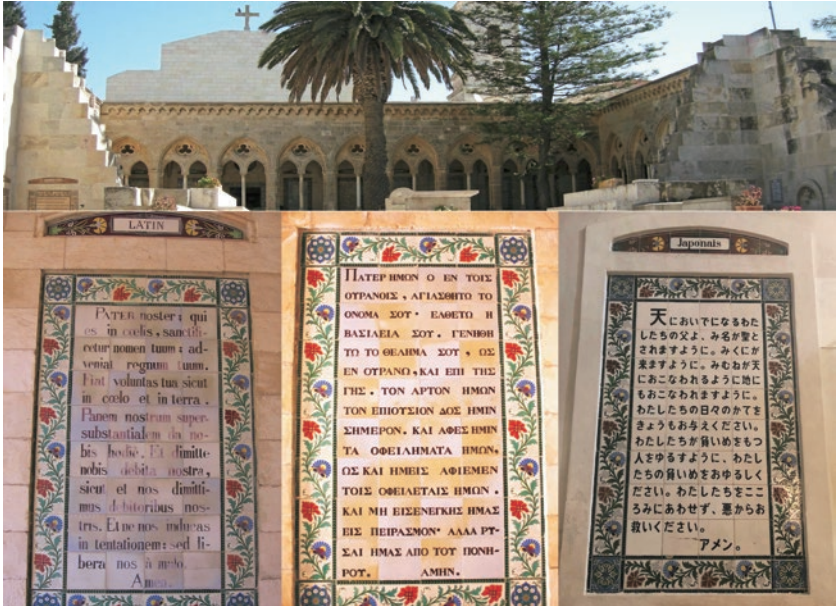 LATIN
PATER noster; qui
es in cœlis, sanctifi-
cetur nomen tuum: ad-
veniat regnum tuum.
Fiat voluntas tua sicut
in cœlo et in terra.
Panem nostrum super-
substantialem da no-
bis hodie. Et dimitte
nobis debita nostra,
sicut et nos dimitti-
mus debitoribus nos-
tris. Et ne nos inducas
in tentationem: sed li-
bera nos à malo.
Amen.
ΠΑΤΕΡ ΗΜΩΝ Ο ΕΝ ΤΟΙΣ
ΟΥΡΑΝΟΙΣ, ΑΓΙΑΣΘΗΤΩ ΤΟ
ΟΝΟΜΑ ΣΟΥ· ΕΛΘΕΤΩ Η
ΒΑΣΙΛΕΙΑ ΣΟΥ. ΓΕΝΗΘΗ
ΤΩ ΤΟ ΘΕΛΗΜΑ ΣΟΥ, ΩΣ
ΕΝ ΟΥΡΑΝΩ, ΚΑΙ ΕΠΙ ΤΗΣ
ΓΗΣ. ΤΟΝ ΑΡΤΟΝ ΗΜΩΝ
ΤΟΝ ΕΠΙΟΥΣΙΟΝ ΔΟΣ ΗΜΙΝ
ΣΗΜΕΡΟΝ. ΚΑΙ ΑΦΕΣ ΗΜΙΝ
ΤΑ ΟΦΕΙΛΗΜΑΤΑ ΗΜΩΝ,
ΩΣ ΚΑΙ ΗΜΕΙΣ ΑΦΙΕΜΕΝ
ΤΟΙΣ ΟΦΕΙΛΕΤΑΙΣ ΗΜΩΝ.
ΚΑΙ ΜΗ ΕΙΣΕΝΕΓΚΗΣ ΗΜΑΣ
ΕΙΣ ΠΕΙΡΑΣΜΟΝ· ΑΛΛΑ ΡΥ-
ΣΑΙ ΗΜΑΣ ΑΠΟ ΤΟΥ ΠΟΝΗ-
ΡΟΥ. ΑΜΗΝ.
Japonais
天においでになるわた
したちの父よ、み名が聖と
されますように。みくにが
来ますように。みむねが天
におこなわれるように地に
もおこなわれますように。
わたしたちの日々のかてを
きょうもお与えください。
わたしたちが負いめをもつ
人をゆるすように、わたし
たちの負いめをおゆるしく
ださい。わたしたちをここ
ろみにあわせず、悪からお
救いください。
アメン。